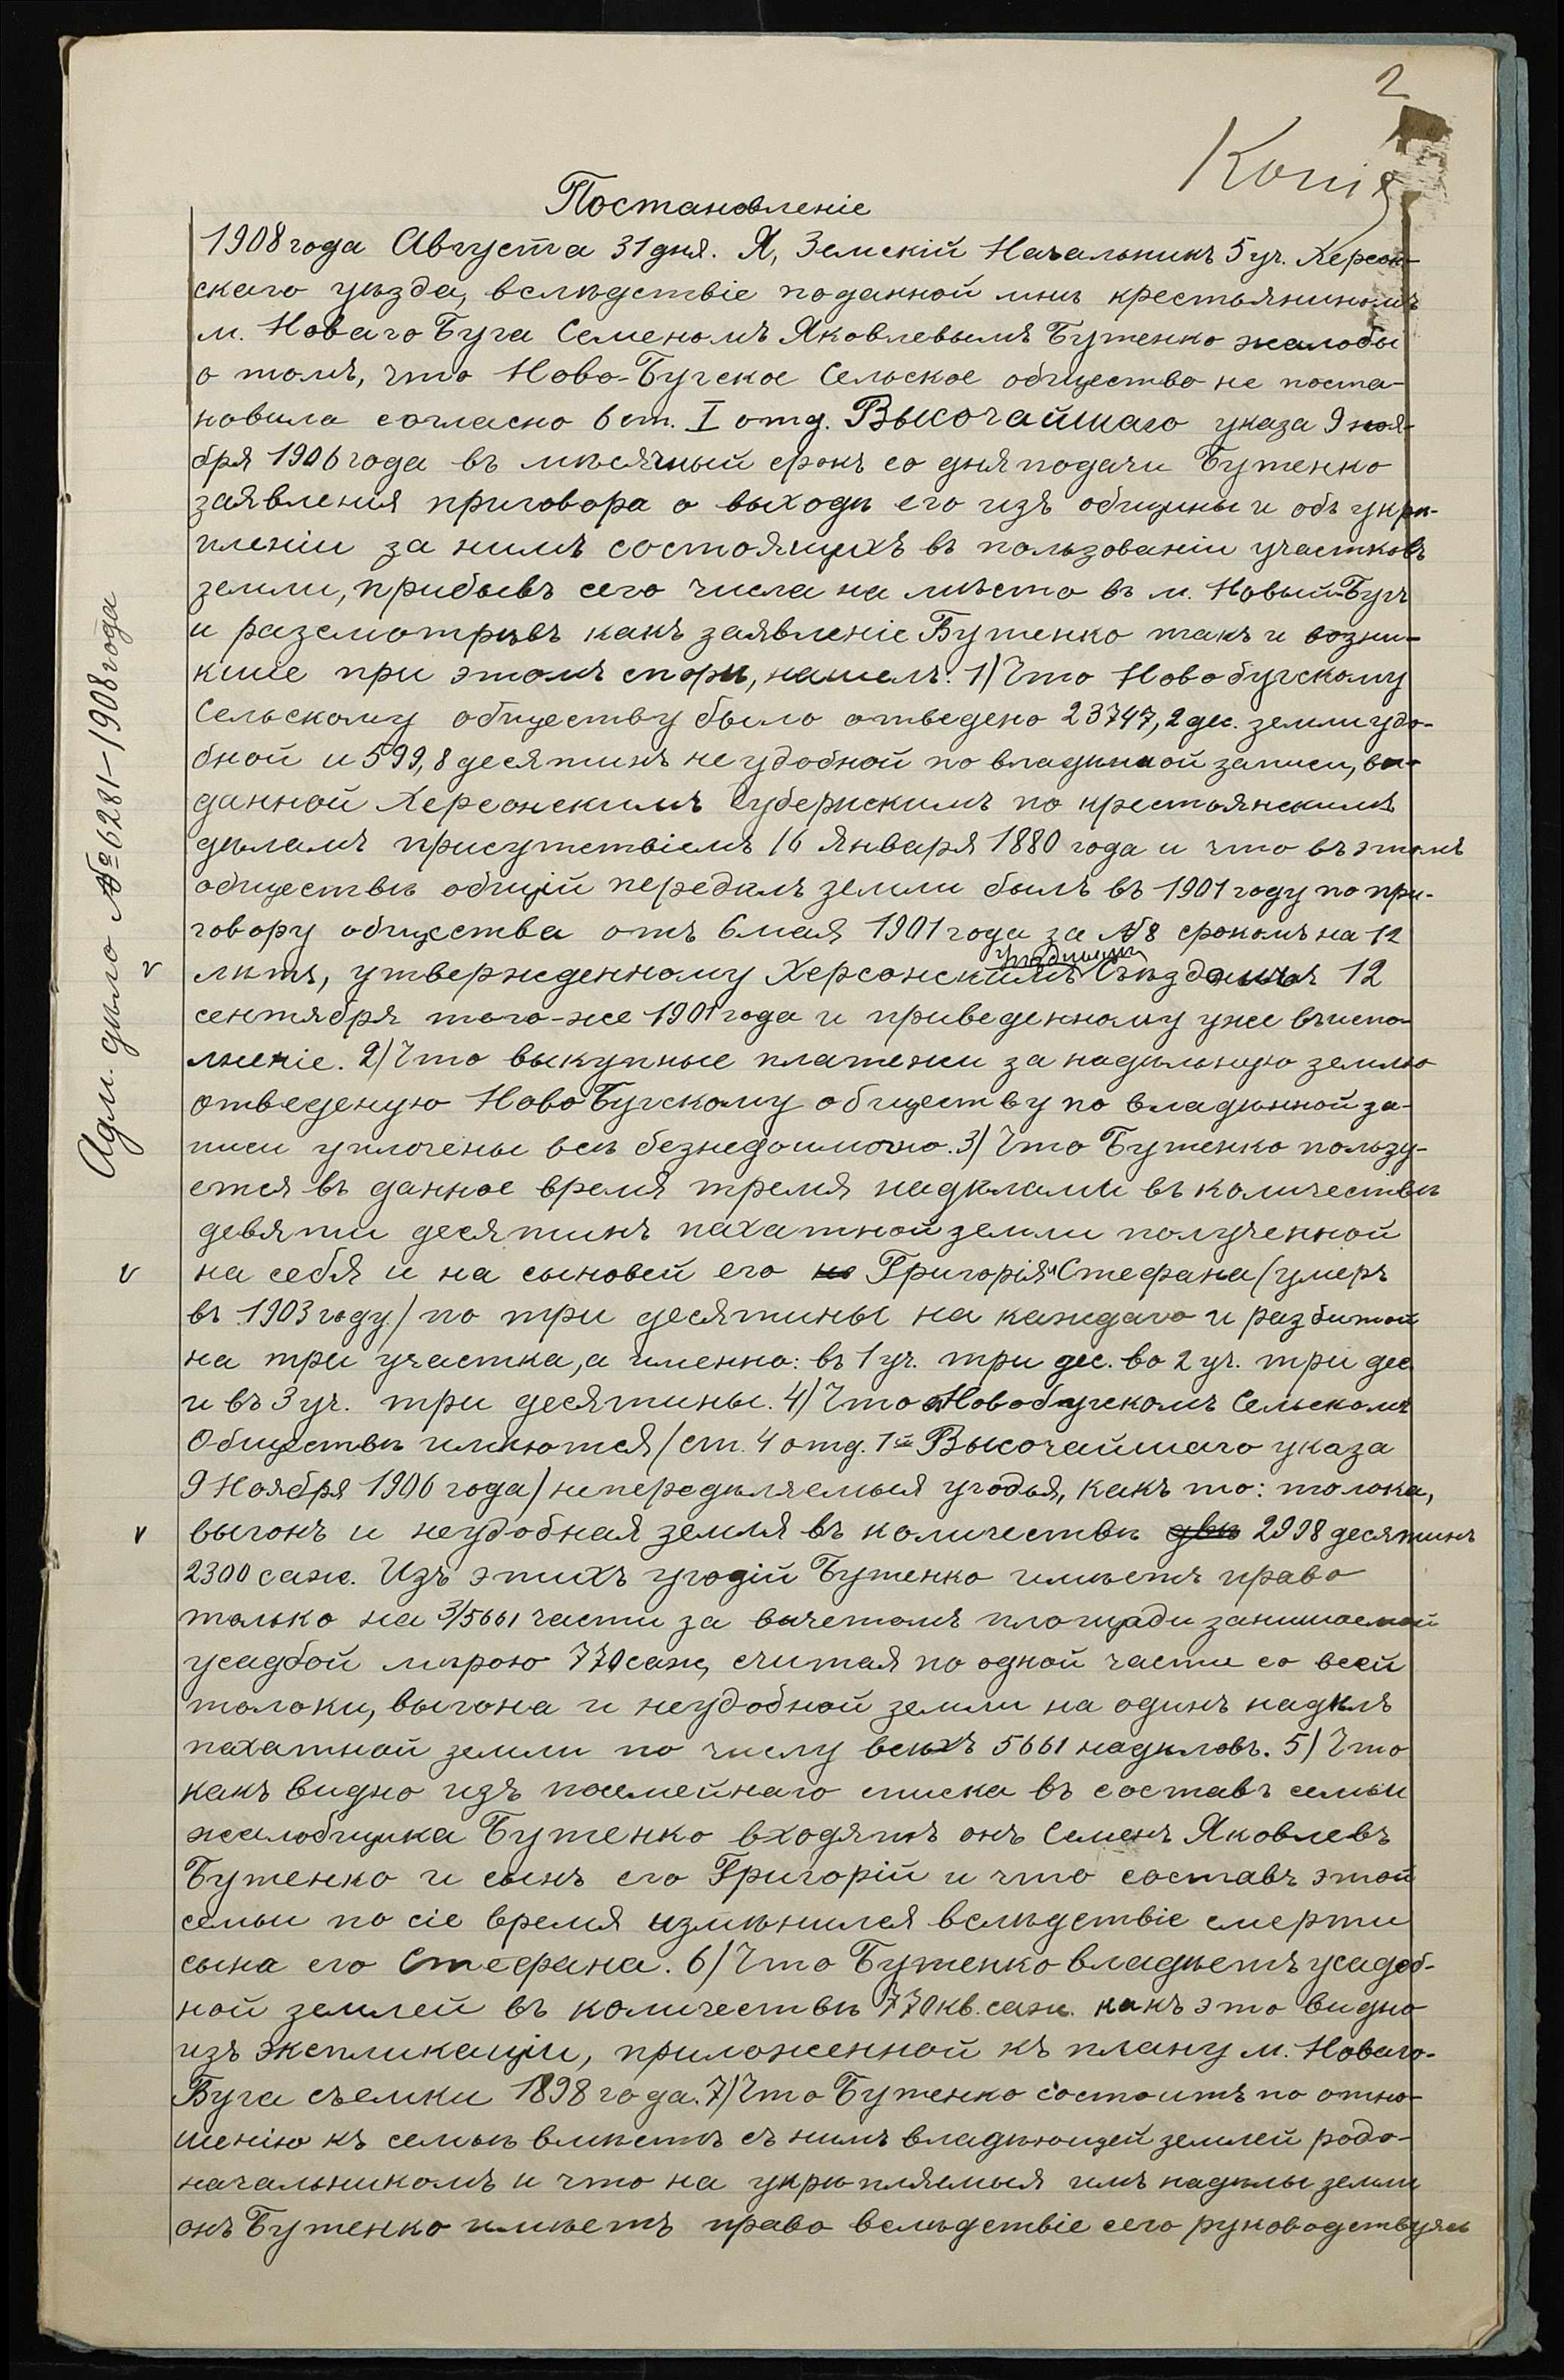 2
Копія
Постановленіе
1908 года Августа 31 дня. Я, Земскій Начальникъ 5 уч. Херсон-
скаго уѣзда, вслѣдствіе поданной мнѣ крестьяниномъ
м. Новаго Буга Семеномъ Яковлевымъ Бутенко жалобы
о томъ, что Ново-Бугское Сельское общество не поста-
новила согласно 6 ст. I отд. Высочайшаго указа 9 ноя-
бря 1906 года въ мѣсячный срокъ со дня подачи Бутенко
заявления приговора о выходѣ его изъ общины и объ укрѣ-
пленіи за нимъ состоящихъ въ пользованіи участковъ
земли, прибывъ сего числа на мѣсто въ м. Новый-Бугъ
и разсмотрѣвъ какъ заявленіе Бутенко такъ и возни-
кшіе при этомъ споры, нашелъ: 1) Что Новобугскому
Сельскому обществу было отведено 23747,2 дес. земли удо-
бной и 599,8 десятинъ неудобной по владѣнной записи, вы-
данной Херсонскимъ Губернскимъ по крестьянскимъ
дѣламъ присутствіемъ 16 Января 1880 года и что въ этомъ
обществѣ общій передѣлъ земли былъ въ 1901 году по при-
говору общества отъ 6 мая 1901 года за № 8 срокомъ на 12
v лѣтъ, утвержденному Херсонскимъ уѣзднымъ Съѣздомъ 12
сентября того-же 1901 года и приведенному уже въ испо-
лненіе. 2) Что выкупные платежи за надѣльную землю
отведеную Ново Бугскому обществу по владѣнной за-
писи уплочены всѣ безнедоимочно. 3) Что Бутенко пользу-
ется въ данное время тремя надѣлами въ количествѣ
девяти десятинъ пахатной земли полученной
v на себя и на сыновей его Григорія и Стефана (умеръ
въ 1903 году) по три десятины на каждаго и разбитой
на три участка, а именно: въ 1 уч. три дес. во 2 уч. три дес.
и въ 3 уч. три десятины. 4) Что в Новобугскомъ Сельскомъ
Обществѣ имѣются (ст. 4 отд. 1й Высочайшаго указа
9 Ноября 1906 года) непередѣляемыя угодья, какъ то: толока,
v выгонъ и неудобная земля въ количествѣ двѣ 2998 десятинъ
2300 саж. Изъ этихъ угодій Бутенко имѣетъ право
только на 3/5661 части за вычетомъ площади занимаемой
усадбой мѣрою 770 саж, считая по одной части со всей
толоки, выгона и неудобной земли на одинъ надѣлъ
пахатной земли по числу всѣхъ 5661 надѣловъ. 5) Что
какъ видно изъ посемейнаго списка въ составъ семьи
жалобщика Бутенко входятъ онъ Семенъ Яковлевъ
Бутенко и сынъ его Григорій и что составъ этой
семьи по сіе время измѣнился вслѣдствіе смерти
сына его Стефана. 6) Что Бутенко владѣетъ усадеб-
ной землей въ количествѣ 770 кв. саж. какъ это видно
изъ экспликаціи, приложенной къ плану м. Новаго-
Буга съемки 1898 года. 7) Что Бутенко состоитъ по отно-
шенію къ семьѣ вмѣстѣ съ нимъ владѣющей землей родо-
начальникомъ и что на укрѣпляемыя имъ надѣлы земли
онъ Бутенко имѣетъ право вслѣдствіе сего руководствуясь
Адм. дѣло № 6281–1908 года